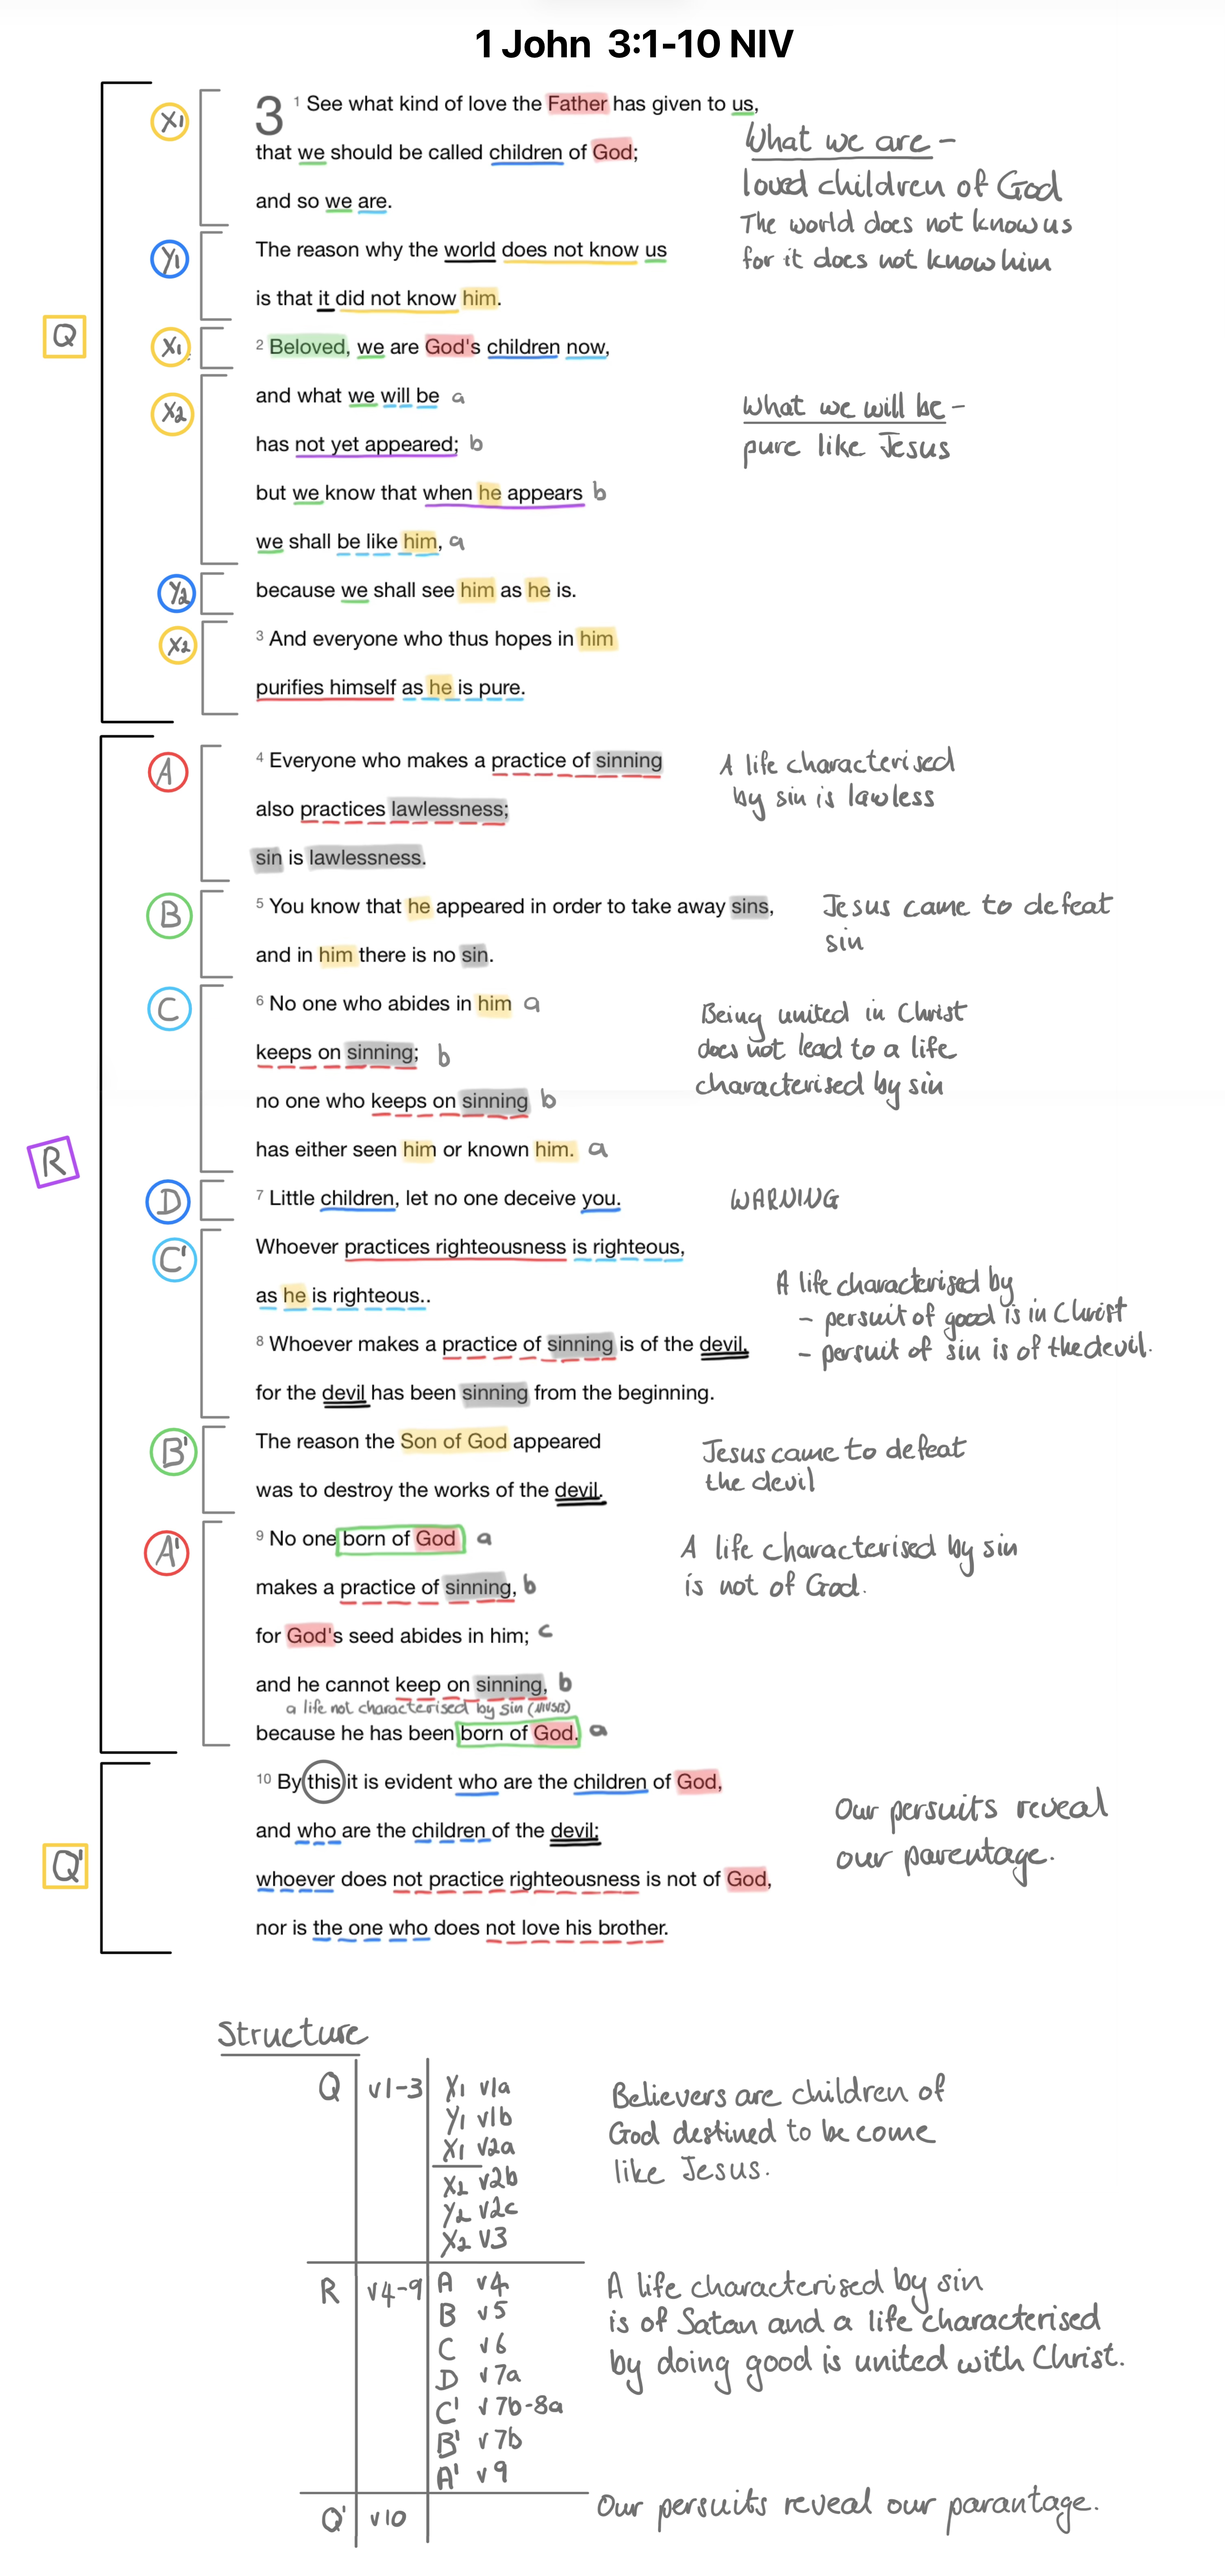 1 John 3:1-10 NIV
X1
3 1 See what kind of love the Father has given to us,
that we should be called children of God;
and so we are.
What we are -
loved children of God
The world does not know us
for it does not know him
Y1
The reason why the world does not know us
is that it did not know him.
Q
X1
2 Beloved, we are God's children now,
X2
and what we will be a
has not yet appeared; b
but we know that when he appears b
we shall be like him, a
What we will be -
pure like Jesus
Y2
because we shall see him as he is.
X2
3 And everyone who thus hopes in him
purifies himself as he is pure.
A
4 Everyone who makes a practice of sinning
also practices lawlessness;
sin is lawlessness.
A life characterised
by sin is lawless
B
5 You know that he appeared in order to take away sins,
and in him there is no sin.
Jesus came to defeat
sin
C
6 No one who abides in him a
keeps on sinning; b
no one who keeps on sinning b
has either seen him or known him. a
Being united in Christ
does not lead to a life
characterised by sin
R
D
7 Little children, let no one deceive you.
WARNING
C'
Whoever practices righteousness is righteous,
as he is righteous..
8 Whoever makes a practice of sinning is of the devil,
for the devil has been sinning from the beginning.
A life characterised by
- persuit of good is in Christ
- persuit of sin is of the devil.
B'
The reason the Son of God appeared
was to destroy the works of the devil.
Jesus came to defeat
the devil
A'
9 No one born of God a
makes a practice of sinning, b
for God's seed abides in him; c
and he cannot keep on sinning, b
a life not characterised by sin (NIVSB)
because he has been born of God. a
A life characterised by sin
is not of God.
Q'
10 By this it is evident who are the children of God,
and who are the children of the devil:
whoever does not practice righteousness is not of God,
nor is the one who does not love his brother.
Our persuits reveal
our parentage.
Structure
Q v1-3 X1 v1a
Y1 v1b
X1 v2a
X2 v2b
Y2 v2c
X2 v3
Believers are children of
God destined to be come
like Jesus.
R v4-9 A v4
B v5
C v6
D v7a
C' v7b-8a
B' v7b
A' v9
A life characterised by sin
is of Satan and a life characterised
by doing good is united with Christ.
Q' v10
Our persuits reveal our parantage.